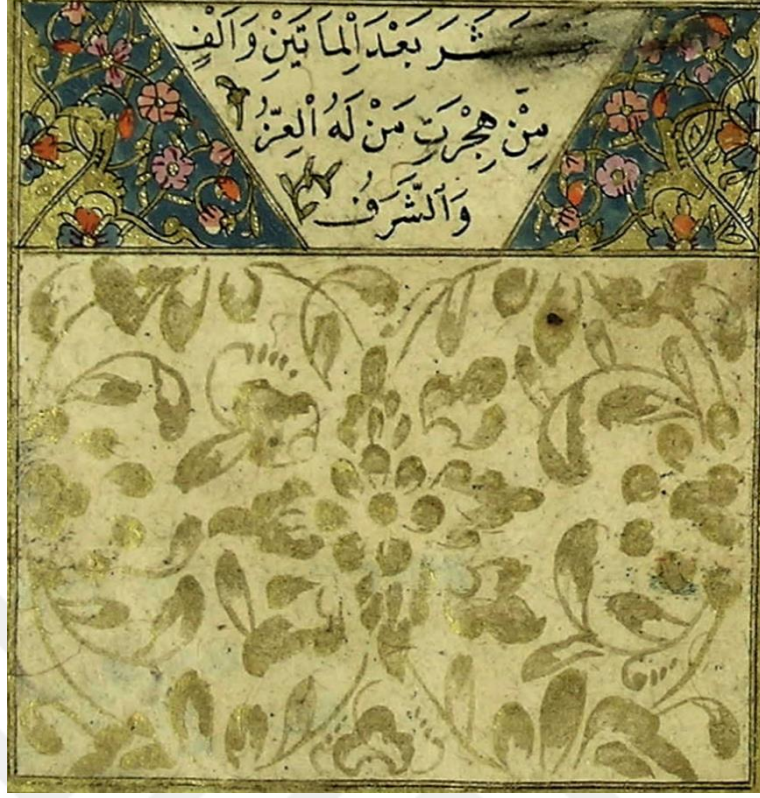 عَشَرَ بَعْدَ اَلْمِاَتَيْنِ وَاَلْفٍ
مِنْ هِجْرَتِ مَنْ لَهُ الْعِزُّ
وَالشَّرَفُ